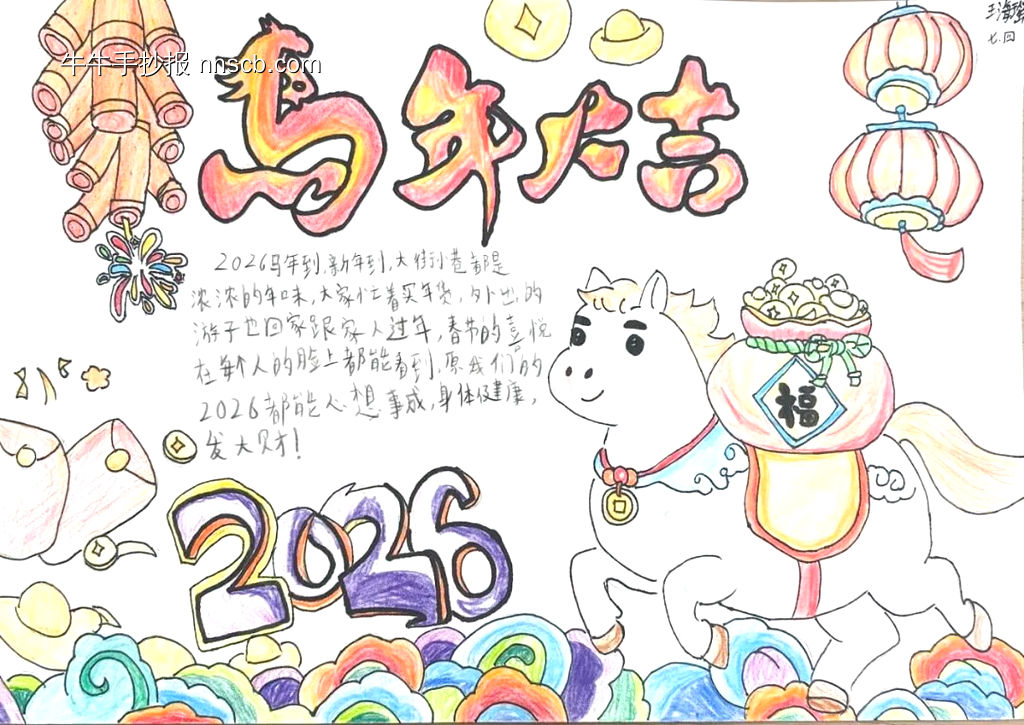 牛牛手抄报 nnscb.com
七.四
马年大吉
2026马年到,新年到,大街小巷都是
浓浓的年味,大家忙着买年货,外出的
游子也回家跟家人过年,春节的喜悦
在每个人的脸上都能看到,愿我们的
2026都能心想事成,身体健康,
发大财!
福
2026